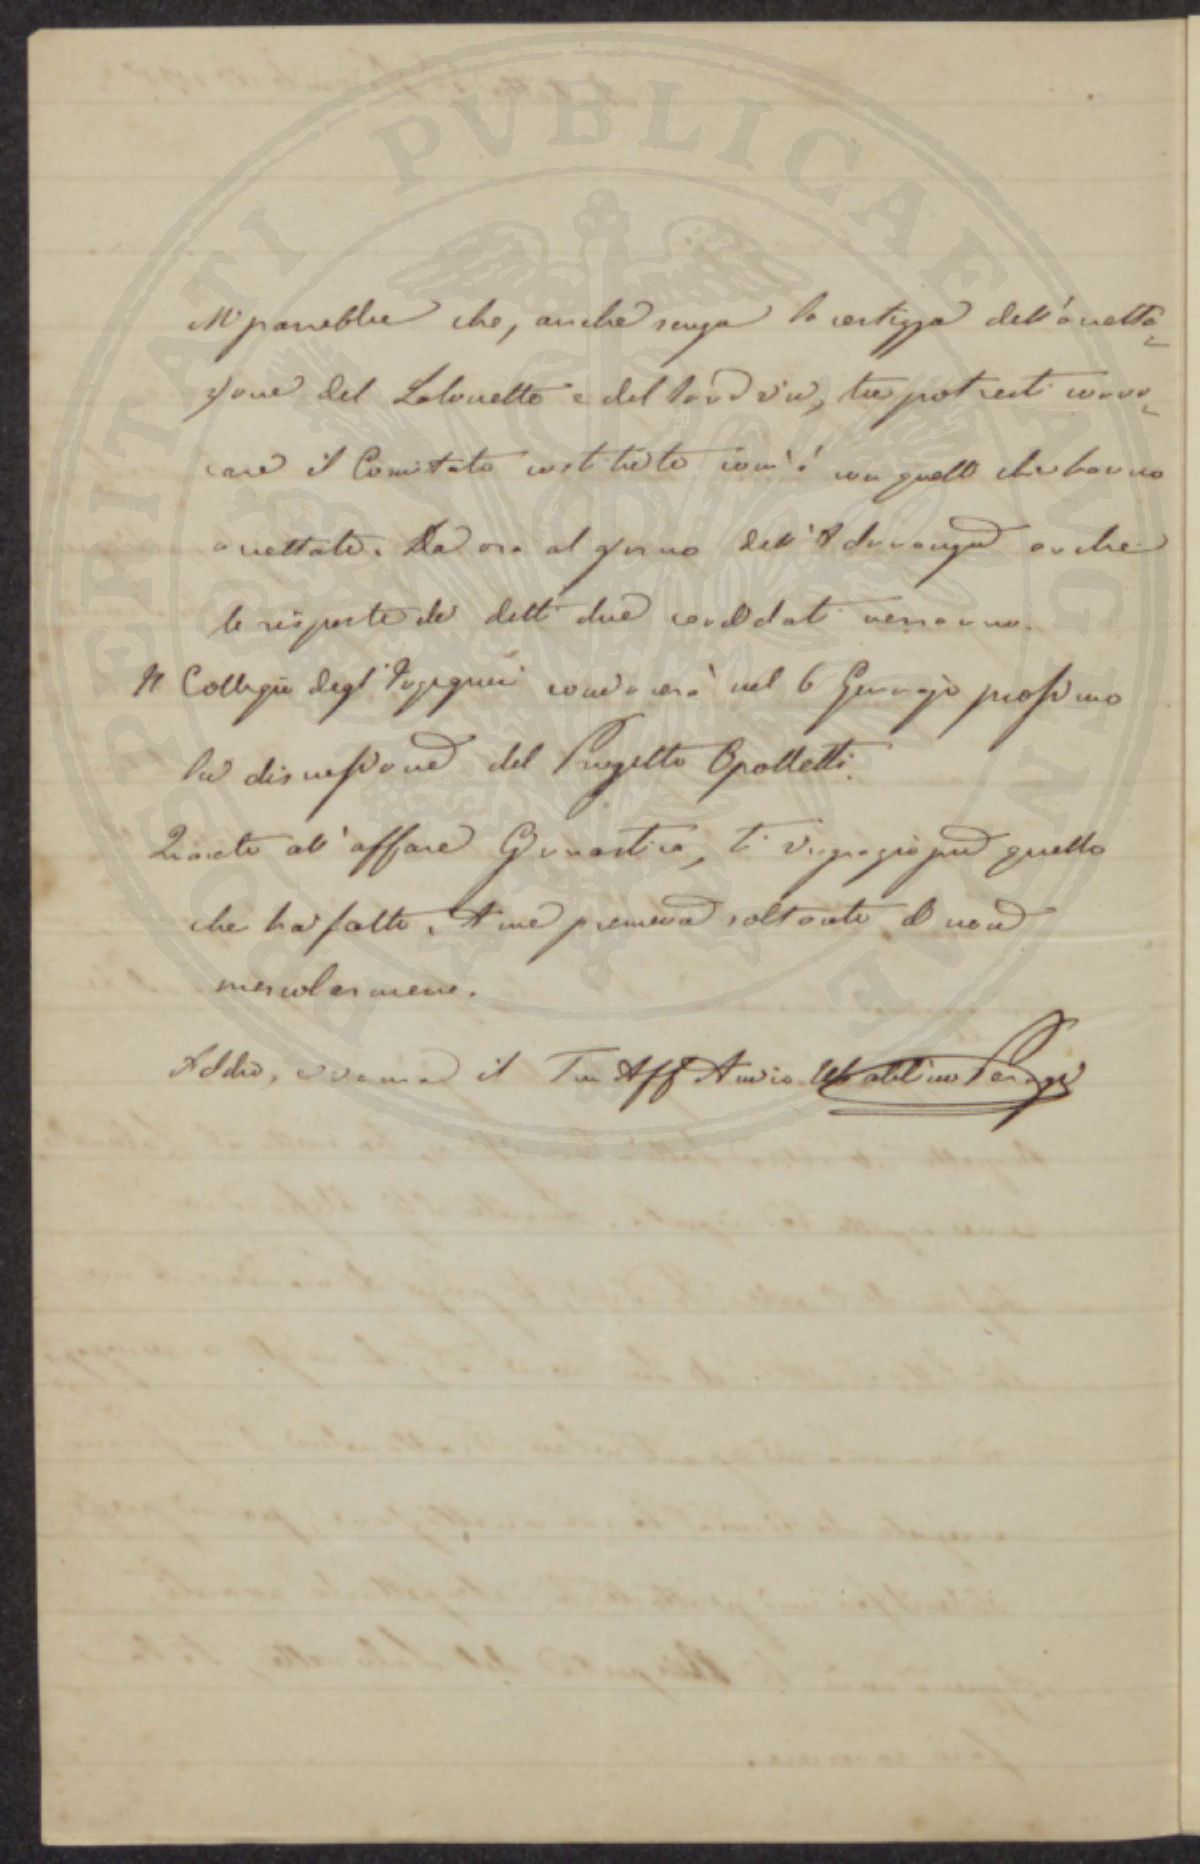 PROSPERITATI PVBLICAE AVGENDAE
Mi parrebbe che, anche senza la certezza dell'accetta=
zione del Salonetto e del , tu potresti convo=
care il Comitato costituito com'è con quelli che hanno
accettato. Da ora al giorno dell'Adunanza anche
le risposte dei detti due candidati verranno.
Il Collegio degl'Ingegneri comincerà nel 6 Gennajo prossimo
la discussione del Progetto Apolletti.
Quanto all'affare Ginnastica, ti ringrazio pur quello
che hai fatto. A me premeva soltanto di non
mescolarmene.
Addio, e ama il Tuo Aff Amico